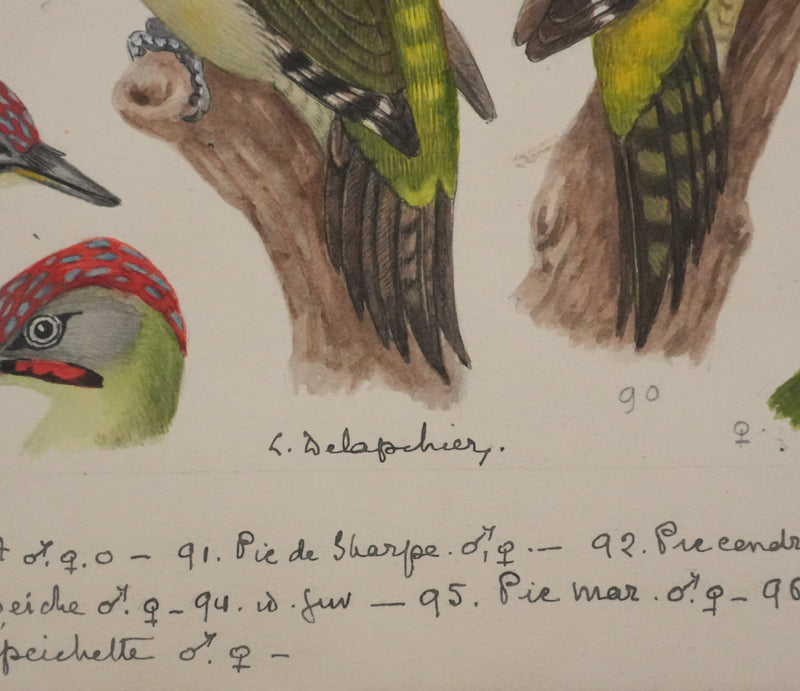 90
♀.
L. Delapchier.
♂.♀.o — 91. Pic de Sharpe. ♂,♀ .— 92. Pic cendr
peiche ♂. ♀ — 94. id. juv — 95. Pic mar. ♂.♀ — 96
peichette ♂. ♀ —